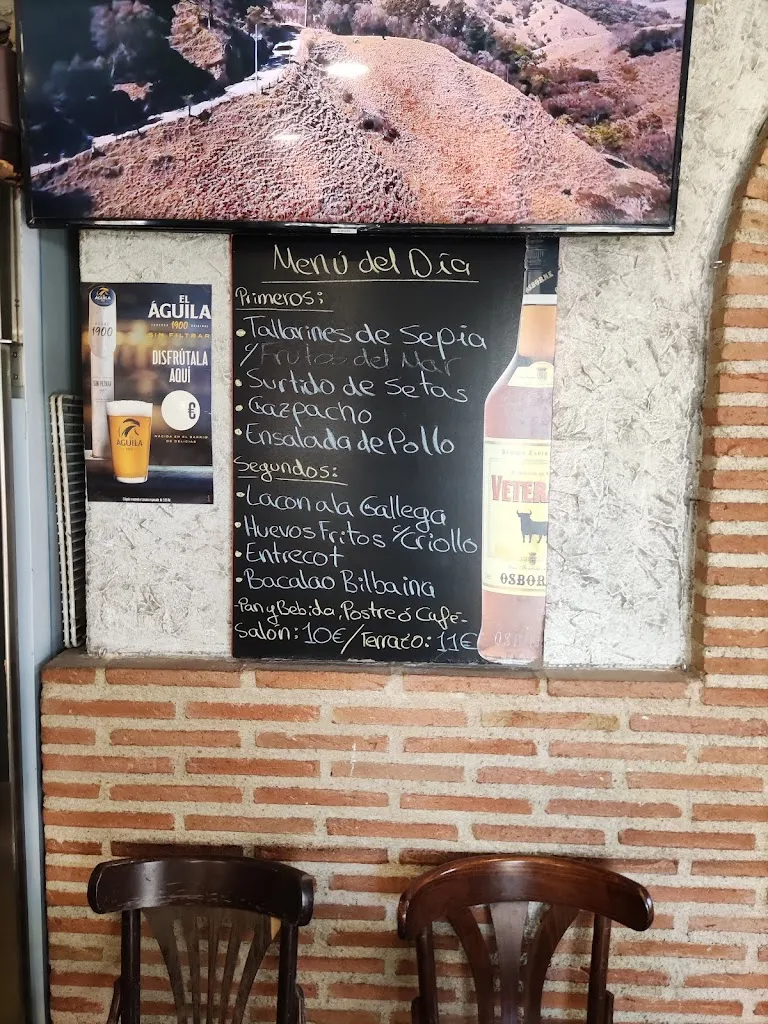 Menú del Día
Primeros:
• Tallarines de Sepia
c/ Frutos del Mar
• Surtido de Setas
• Gazpacho
• Ensalada de Pollo
Segundos:
• Lacon ala Gallega
• Huevos Fritos c/ Criollo
• Entrecot
• Bacalao Bilbaina
-Pan y Bebida, Postre ó Café-
Salon: 10€ / Terraza: 11€
EL
ÁGUILA
1900
SIN FILTRAR
DISFRÚTALA
AQUÍ
€
1900
SIN FILTRAR
ÁGUILA
OSBORNE
VETER
OSBOR